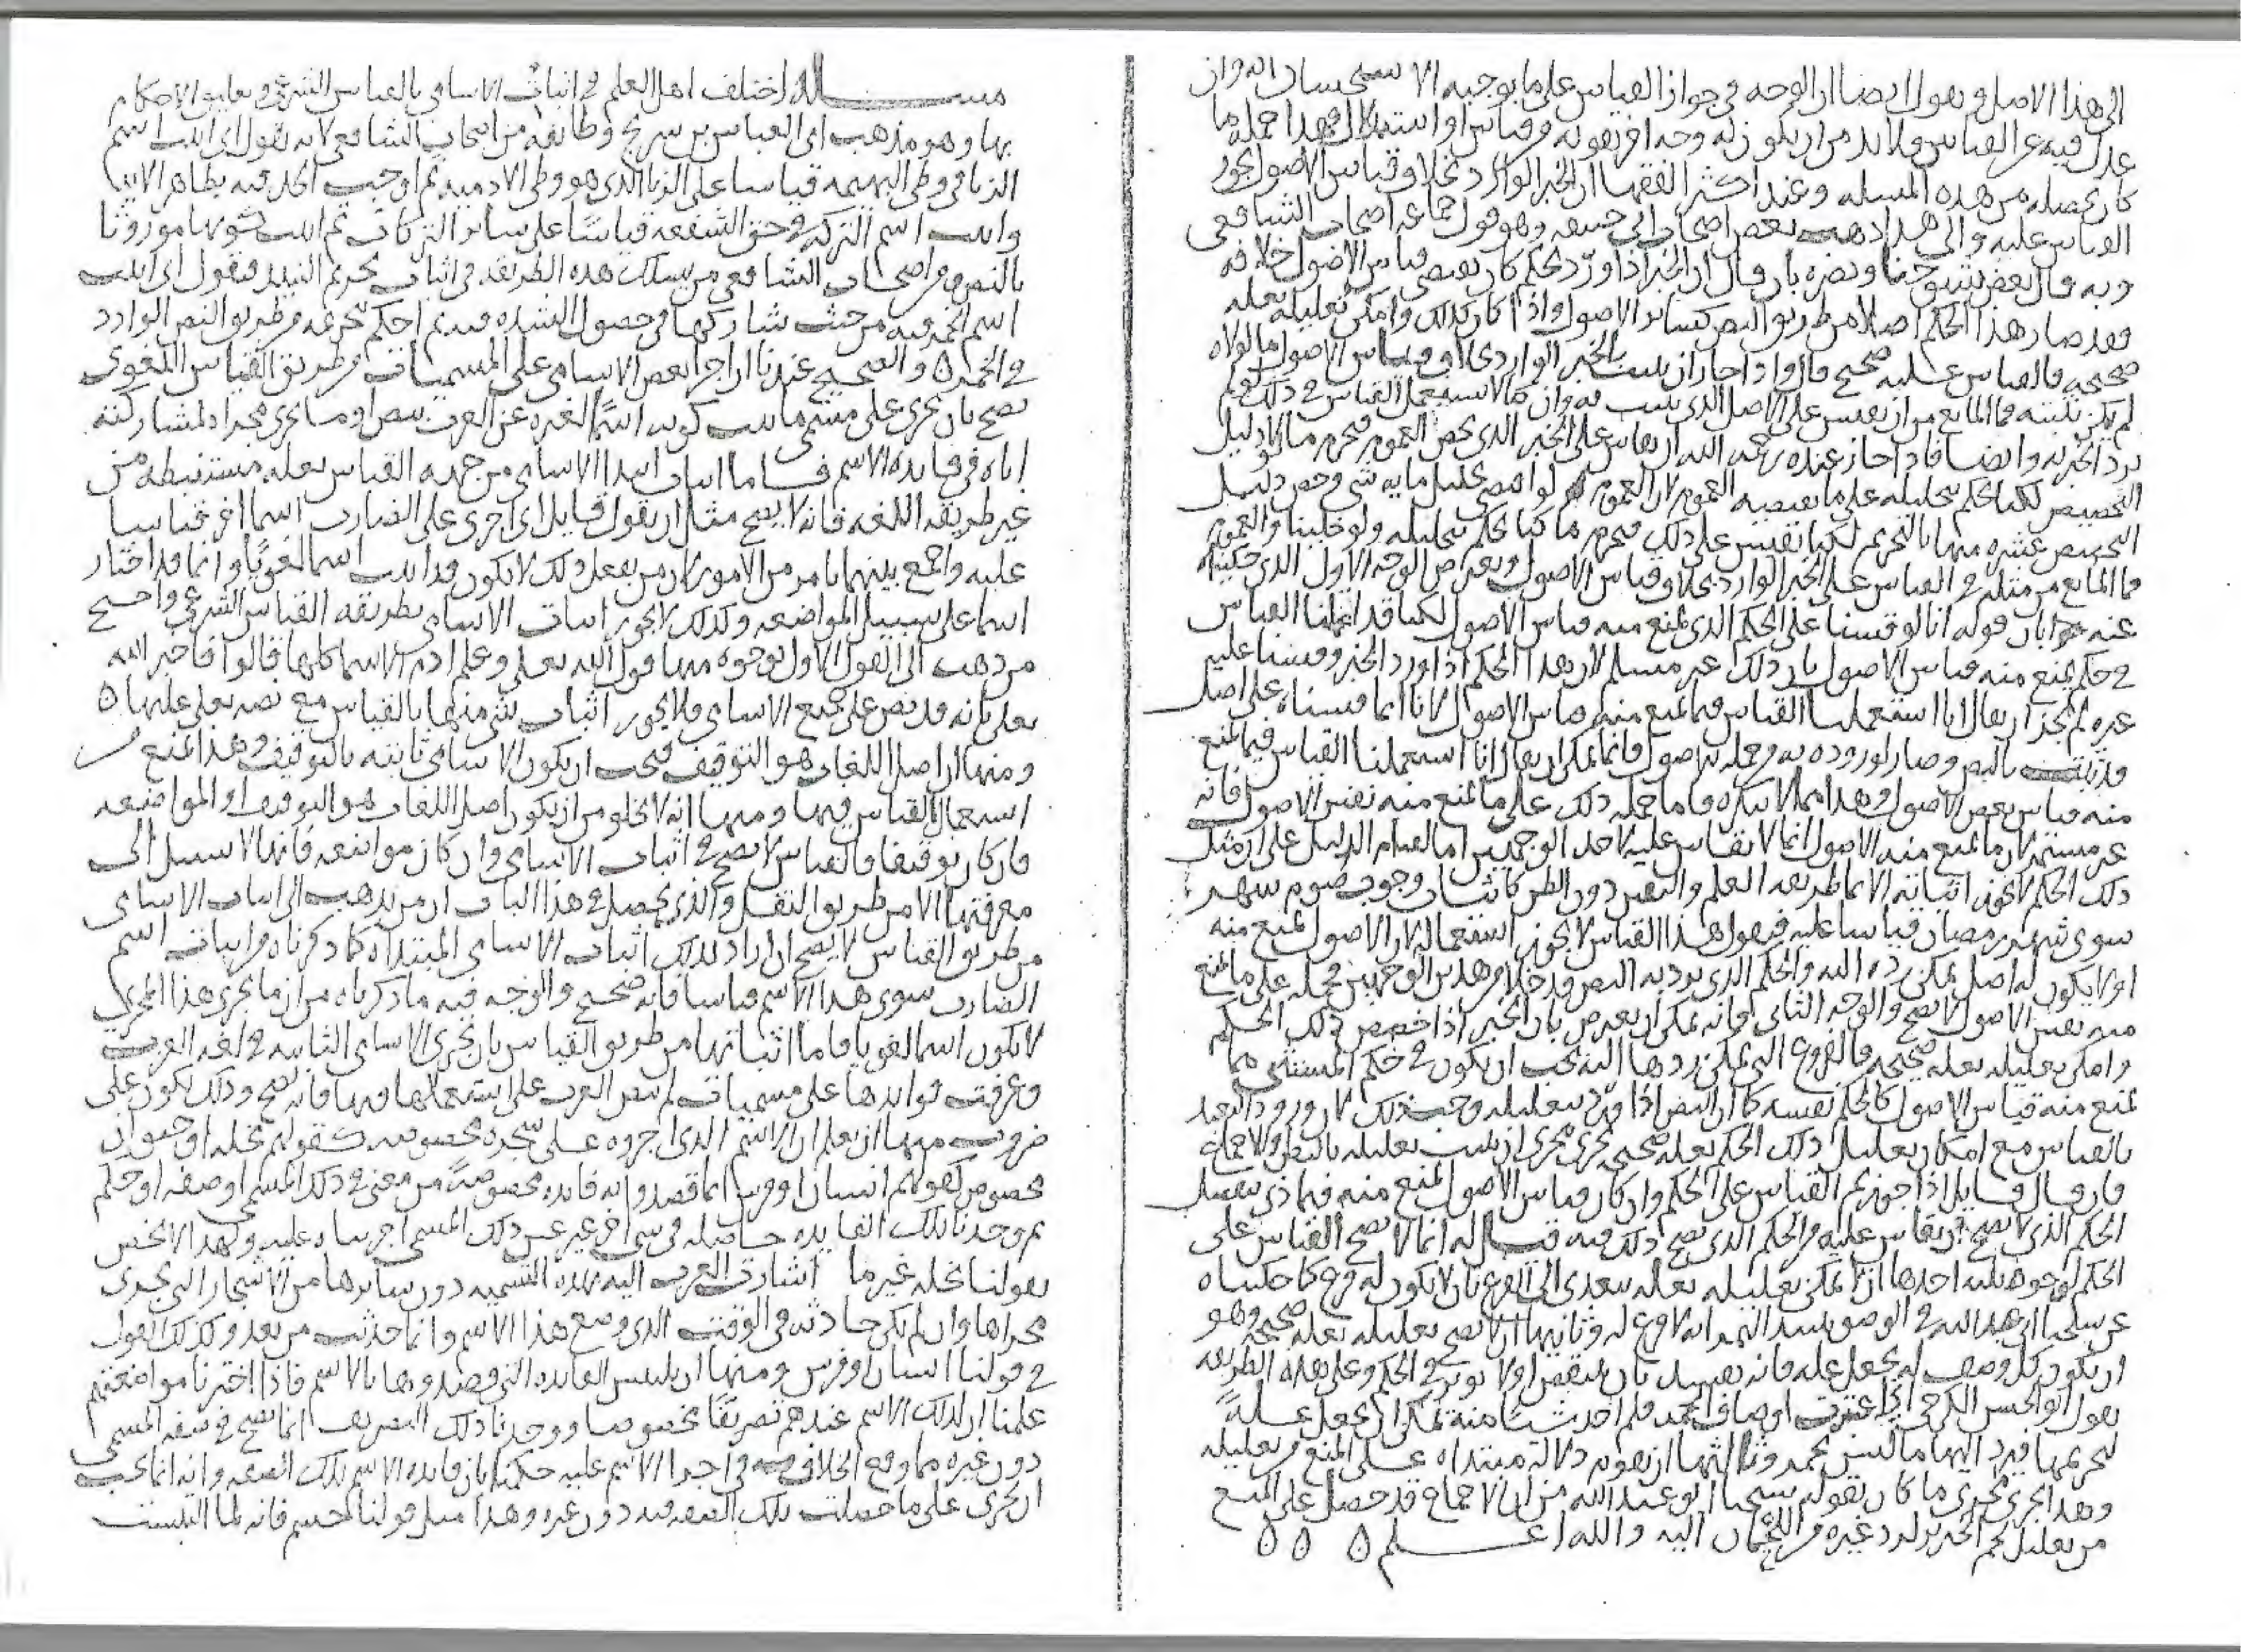 الى هذا الاصل ويقول ايضا ان الوجه في جواز القياس على ما يوجبه الاستحسان انه وان
عدل فيه عن القياس ولا بد من ان يكون له وجه اخر يقويه وقياس او استدلال فهذا جملة ما
كان يحصله من هذه المسئلة وعند اكثر الفقها ان الخبر الوارد بخلاف قياس الاصول يجوز
القياس عليه والى هذا ذهب بعض اصحاب ابي حنيفة وهو قول جماعة اصحاب الشافعي
وبه قال بعض شيوخنا ونصره بان قال ان الخبر اذا ورد بحكم كان يقتضي قياس الاصول خلافه
فقد صار هذا الحكم اصلا من طريق النص كسائر الاصول واذا كان كذلك وامكن تعليله بعلة
صحيحة فالقياس عليه صحيح قال واذا جاز ان يثبت بالخبر الوارد بخلاف قياس الاصول ما لولاه
لم يكن نثبته فما المانع من ان نقيس على الاصل الذي يثبت به وان كنا لا نستعمل القياس في ذلك لو لم
يرد الخبر به وايضا فاذا جاز عنده رحمه الله ان يقاس على الخبر الذي يخص العموم فيحرم ما لولا دليل
التخصيص لكنا نحكم بتحليله على ما يقتضيه العموم لان العموم لو اقتضى تحليل ماية شي وخص دليل
التخصيص عشرة منها بالتحريم لكنا نقيس على ذلك فنحرم ما كنا نحكم بتحليله ولو خلينا والعموم
فما المانع من مثله في القياس على الخبر الوارد بخلاف قياس الاصول ويعترض الوجه الاول الذي حكيناه
عنه جوابان قوله انا لو قسنا على الحكم الذي يمنع منه قياس الاصول لكنا قد استعملنا القياس
في حكم يمنع منه قياس الاصول بان ذلك غير مسلم لان بهذا الحكم اذا ورد الخبر وقسنا عليه
غيره لم يجز ان يقال انا استعملنا القياس فيما يمنع منه قياس الاصول لانا انما قسناه على اصل
قد ثبت بالنص وصار لوروده به من جملة الاصول فانما يمكن ان يقال انا استعملنا القياس فيما يمنع
منه قياس بعض الاصول وهذا مما لا ننكره فاما حمله ذلك على ما يمنع منه نفس الاصول فانه
غير مستمر لان ما يمنع منه الاصول انما لا يقاس عليه لاحد الوجهين اما لقيام الدليل على ان مثل
ذلك الحكم لا يجوز اثباته الا بما طريقه العلم والنص دون الظن كاثبات وجوب صوم شهر
سوى شهر رمضان قياسا عليه فيقول هذا القياس لا يجوز استعماله لان الاصول تمنع منه
او لا يكون له اصل يمكن رده اليه والحكم الذي يرد به النص قد خلا من هذين الوجهين فحمله على ما يمنع
منه نفس الاصول لا يصح والوجه الثاني فانه يمكن ان يعترض بان الخبر اذا خصص ذلك الحكم
وامكن تعليله بعلة صحيحة فالفروع التي يمكن ردها اليه يجب ان يكون في حكم المستثنى مما
يمنع منه قياس الاصول كالحكم نفسه كما ان النص اذا ورد بتعليله وجب ذلك لان ورود التعبد
بالقياس مع امكان تعليل ذلك الحكم بعلة صحيحة يجري مجرى ان يثبت تعليله بالنص والاجماع
فان قال قايل اذا جوزتم القياس على الحكم وان كان قياس الاصول يمنع منه فيماذا يفصل
الحكم الذي لا يصح ان يقاس عليه من الحكم الذي يصح ذلك فيه قيل له انما لا يصح القياس على
الحكم لوجوه ثلثة احدها ان لا يمكن تعليله بعلة تتعدى الى الفرع بان لا يكون له فرع كما حكيناه
عن شيخنا ابي عبد الله في الوضو بنبيذ التمر انه لا فرع له وثانيها ان لا يصح تعليله بعلة صحيحة وهو
ان يكون كل وصف له يجعل علة فانه يفسد بان ينتقض او لا يوثر في الحكم وعلى هذه الطريقة
يقول ابو الحسن الكرخي اني اعتبرت اوصاف الخمر فلم اجد شيئا منه يمكن ان يجعل علة
لتحريمها فيرد اليها ما ليس بخمر وثالثها ان يقوم دلالة مبتداة على المنع من تعليله
وهذا يجري مجرى ما كان يقوله شيخنا ابو عبد الله من ان الاجماع قد حصل على المنع
من تعليل لحم الخنزير لرد غيره من اللحمان اليه والله اعلم
مسئلة اختلف اهل العلم في اثبات الاسامي بالقياس الشرعي وتعليق الاحكام
بها وهو مذهب ابي العباس بن سريج وطائفة من اصحاب الشافعي لانه يقول اني اثبت اسم
الزنا في وطي البهيمة قياسا على الزنا الذي هو وطي الادمية ثم اوجب الحد فيه بظاهر الاية
واثبت اسم التركة في حق الشفعة قياسا على سائر التركات ثم اثبت كونها موروثا
بالنص ومن اصحاب الشافعي من يسلك هذه الطريقة في اثبات تحريم النبيذ فيقول اني اثبت
اسم الخمر فيه من حيث شاركها في حصول الشدة فيه ثم احكم بتحريمه من طريق النص الوارد
في الخمر والصحيح عندنا ان اجرا بعض الاسامي على المسميات من طريق القياس اللغوي
يصح بان يجري على مسمى ما يثبت كونه اسما لغيره عن العرب بنص او ما يجري مجراه لمشاركته
اياه في فايدة الاسم فاما اثبات ابتدا الاسامي من جهة القياس بعلة مستنبطة من
غير طريقة اللغة فانه لا يصح مثل ان يقول قايل اني اجري على الضارب اسما اخر قياسا
عليه واجمع بينهما بامر من الامور لان من يفعل ذلك لا يكون قد اثبت اسما لغويا وانما قد اختار
اسما على سبيل المواضعة وكذلك لا يجوز اثبات الاسامي بطريقة القياس الشرعي واحتج
من ذهب الى القول الاول بوجوه منها قول الله تعلى وعلم ادم الاسما كلها قالوا فاخبر الله
تعلى بانه قد نص على جميع الاسامي فلا يجوز اثبات شي منها بالقياس مع نصه تعلى عليها
ومنها ان اصل اللغات هو التوقيف فيجب ان يكون الاسامي ثابتة بالتوقيف وهذا يمنع من
استعمال القياس فيها ومنها انه لا يخلو من ان يكون اصل اللغات هو التوقيف او المواضعة
فان كان توقيفا فالقياس لا يصح في اثبات الاسامي وان كان مواضعة فانها لا سبيل الى
معرفتها الا من طريق النقل والذي يحصل في هذا الباب ان من يذهب الى اثبات الاسامي
من طريق القياس لا يصح ان اراد بذلك اثبات الاسامي المبتداة كما ذكرناه من اثبات اسم
الضارب سوى هذا الاسم قياسا فانه صحيح والوجه فيه ما ذكرناه من ان ما يجري هذا المجرى
لا يكون اسما لغويا فاما اثباتها من طريق القياس بان يجري الاسامي الثابتة في لغة العرب
وعرفت فوايدها على مسميات لم ينص العرب على استعمالها فيها فانه يصح وذلك يكون على
ضروب منها ان نعلم ان الاسم الذي اجروه على شجرة مخصوصة كقولهم نخلة او حيوان
مخصوص كقولهم انسان او فرس انما قصدوا به فايدة مخصوصة من معنى في ذلك المسمى او صفة او حكم
ثم وجدنا تلك الفايدة حاصلة في شي اخر غير عين ذلك المسمى اجريناه عليه ولهذا لا يختص
بقولنا نخلة غير ما اشارت العرب اليه بهذه التسمية دون سائرها من الاشجار التي يجري
مجراها وان لم يكن حادثة في الوقت الذي وضع هذا الاسم وانما حدثت من بعد وكذلك القول
في قولنا انسان وفرس ومنها ان يلتبس الفايدة التي قصدوها بالاسم فاذا اختبرنا مواضعتهم
علمنا ان لذلك الاسم عندهم تصريفا مخصوصا ووجدنا ذلك التصريف انما يصح في صفة المسمى
دون غيره مما وقع الخلاف فيه في اجرا الاسم عليه حكمنا بان فايدة الاسم تلك الصفة وانه انما يجب
ان يجري على ما حصلت تلك الصفة فيه دون غيره وهذا مثل قولنا جسم فانه لما التبست